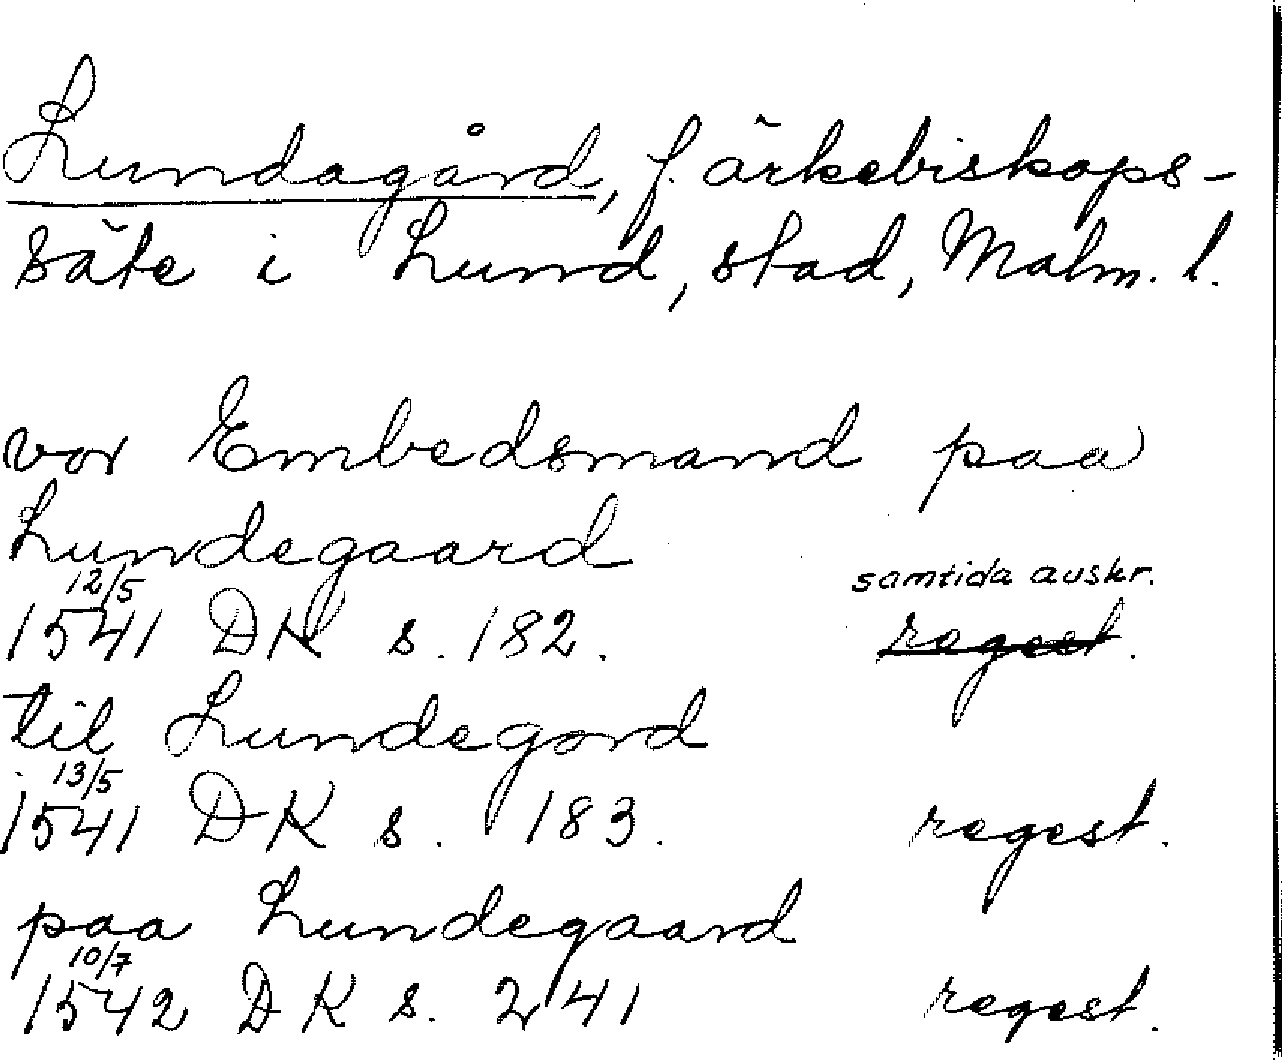 Lundagård, f. ärkebiskops-
säte i Lund, stad, Malm. l.
vor Embedsmand paa
Lundegaard
samtida avskr.
12/5
1541 DK s. 182. regest.
til Lundegord
13/5
1541 DK s. 183. regest.
paa Lundegaard
10/7
1542 DK s. 241 regest.